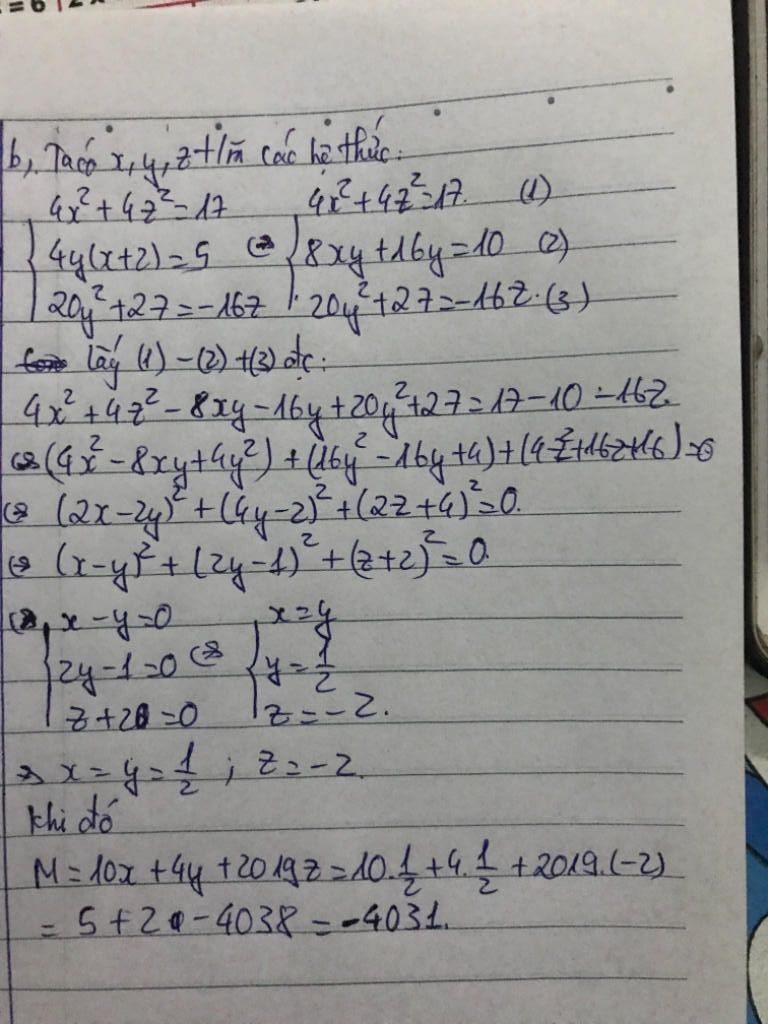 = 6 | 2x
b, Ta có x, y, z t/m các hệ thức:
4x² + 4z² = 17 4x² + 4z² = 17. (1)
4y(x+2) = 5 <=> 8xy + 16y = 10 (2)
20y² + 27 = -16z 20y² + 27 = -16z. (3)
lấy (1) - (2) + (3) đc:
4x² + 4z² - 8xy - 16y + 20y² + 27 = 17 - 10 - 16z.
<=> (4x² - 8xy + 4y²) + (16y² - 16y + 4) + (4z² + 16z + 16) = 0
<=> (2x - 2y)² + (4y - 2)² + (2z + 4)² = 0.
<=> (x - y)² + (2y - 1)² + (z + 2)² = 0.
<=> x - y = 0 x = y
2y - 1 = 0 <=> y = 1/2
z + 2 = 0 z = -2.
=> x = y = 1/2 ; z = -2.
Khi đó
M = 10x + 4y + 2019z = 10. 1/2 + 4. 1/2 + 2019.(-2)
= 5 + 2 - 4038 = -4031.